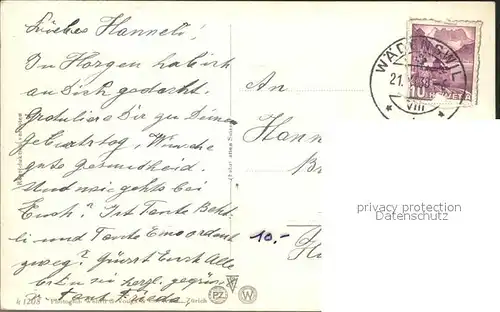 Liebes Hanneli!
In Horgen hab ich
an Dich gedacht.
Gratuliere Dir zu Deinem
Geburtstag, Wünsche
gute Gesundheid.
Und wie gehts bei
Euch? Ist Tante
li und Tante Emo ordent
zweg? Grüsst Euch Alle
herzl.
Tant Frieda,
An
Hann
Br
10.-
H
WÄDENSWIL
21.
VIII
10
privacy protection
Datenschutz
1208
Zürich
PZ
W